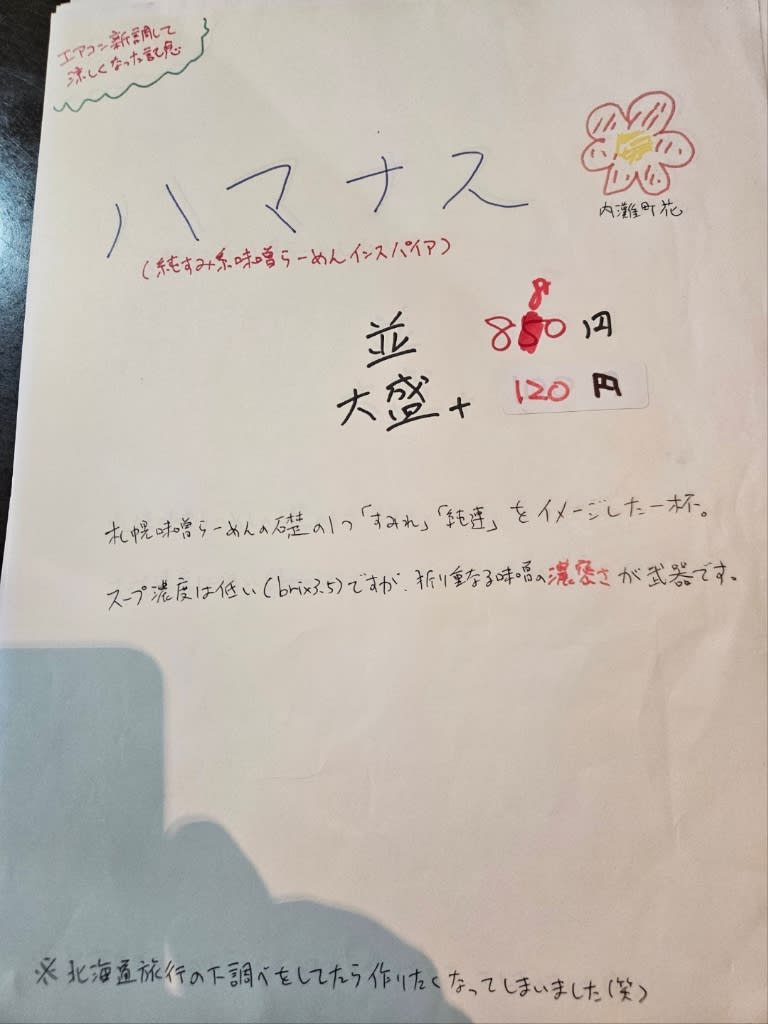 エアコン新調して
涼しくなった記念
ハマナス
内灘町花
(純すみ系味噌らーめんインスパイア)
並 880円
大盛+ 120円
札幌味噌らーめんの礎の1つ「すみれ」「純連」をイメージした一杯。
スープ濃度は低い(brix3.5)ですが、折り重なる味噌の濃密さが武器です。
※北海道旅行の下調べをしてたら作りたくなってしまいました(笑)